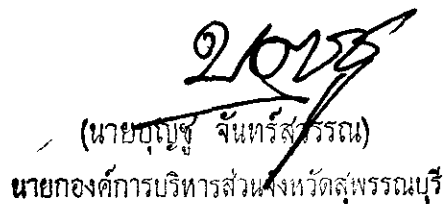 (นายบุญชู จันทร์สุวรรณ)
นายกองค์การบริหารส่วนจังหวัดสุพรรณบุรี